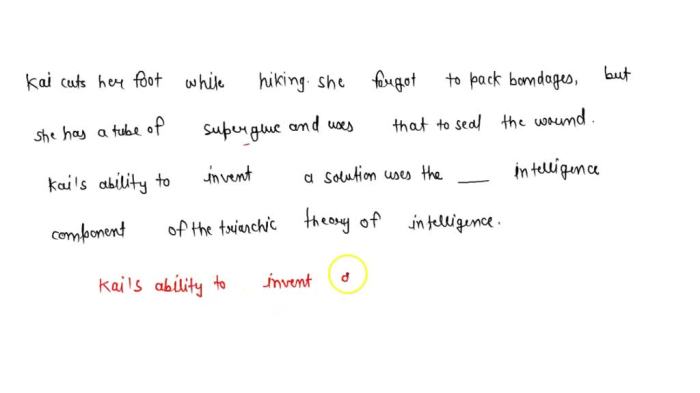 Kai cuts her foot while hiking. she forgot to pack bandages, but
she has a tube of superglue and uses that to seal the wound.
Kai's ability to invent a solution uses the ___ intelligence
component of the triarchic theory of intelligence.
Kai's ability to invent